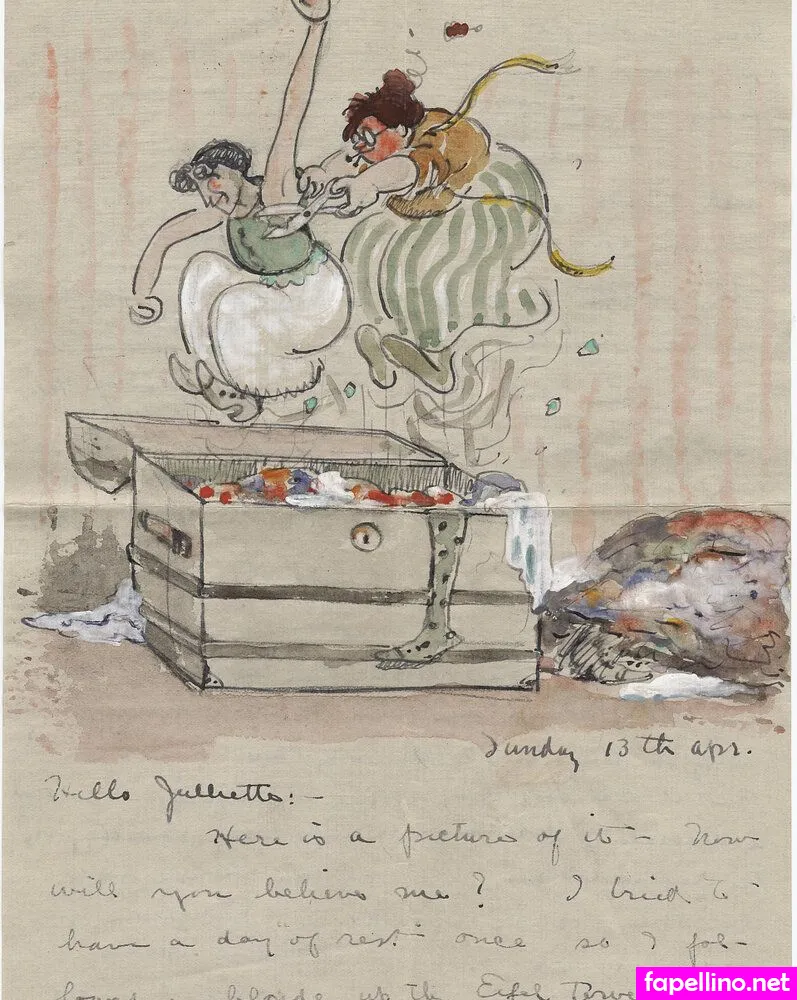 Sunday 13th apr.
Hello Julliette:-
Here is a picture of it - Now
will you believe me? I tried to
have a day of rest once so I fol-
a blonde up the Eifel Towe
fapellino.net